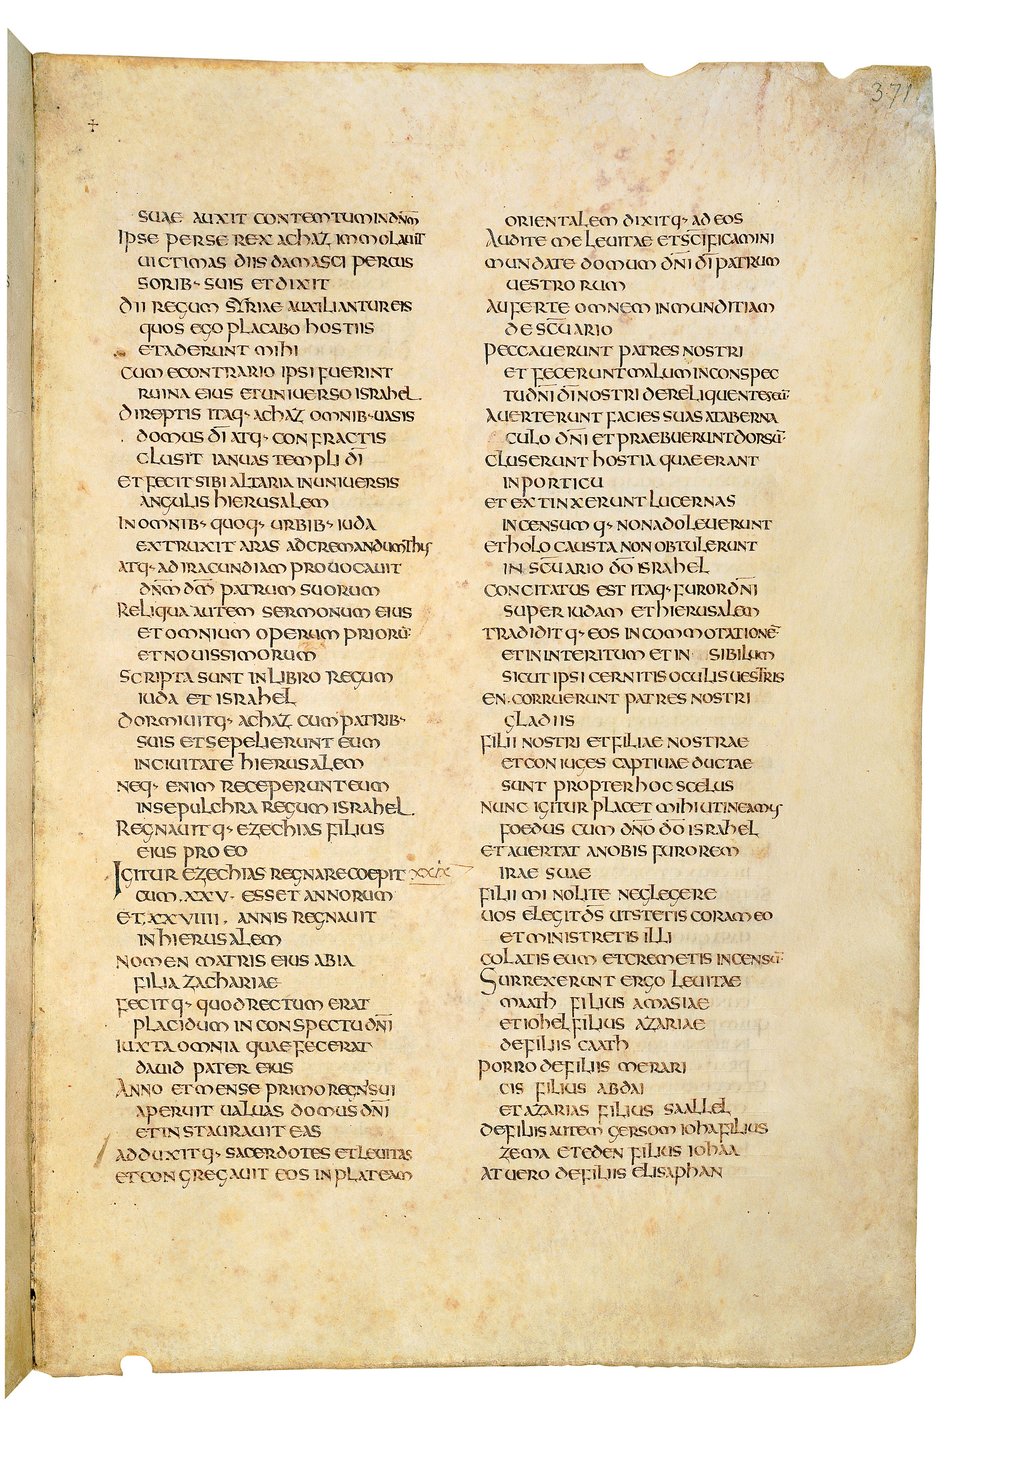 371
+
SUAE AUXIT CONTEMTUM IN DN̄M
IPSE PERSE REX ACHAZ IMMOLAUIT
UICTIMAS DIIS DAMASCI PERCUS
SORIB· SUIS ET DIXIT
DII REGUM SYRIAE AUXILIANTUR EIS
QUOS EGO PLACABO HOSTIIS
ET ADERUNT MIHI
CUM E CONTRARIO IPSI FUERINT
RUINA EIUS ET UNIUERSO ISRAHEL
DIREPTIS ITAQ· ACHAZ OMNIB· UASIS
DOMUS DĪ ATQ· CONFRACTIS
CLUSIT IANUAS TEMPLI DĪ
ET FECIT SIBI ALTARIA IN UNIUERSIS
ANGULIS HIERUSALEM
IN OMNIB· QUOQ· URBIB· IUDA
EXTRUXIT ARAS AD CREMANDUM THUS
ATQ· AD IRACUNDIAM PROUOCAUIT
DN̄M DM̄ PATRUM SUORUM
RELIQUA AUTEM SERMONUM EIUS
ET OMNIUM OPERUM PRIORŪ·
ET NOUISSIMORUM
SCRIPTA SUNT IN LIBRO REGUM
IUDA ET ISRAHEL
DORMIUITQ· ACHAZ CUM PATRIB·
SUIS ET SEPELIERUNT EUM
IN CIUITATE HIERUSALEM
NEQ· ENIM RECEPERUNT EUM
IN SEPULCHRA REGUM ISRAHEL
REGNAUITQ· EZECHIAS FILIUS
EIUS PRO EO
IGITUR EZECHIAS REGNARE COEPIT XXIX
CUM .XXV. ESSET ANNORUM
ET .XXVIIII. ANNIS REGNAUIT
IN HIERUSALEM
NOMEN MATRIS EIUS ABIA
FILIA ZACHARIAE
FECITQ· QUOD RECTUM ERAT
PLACIDUM IN CONSPECTU DN̄I
IUXTA OMNIA QUAE FECERAT
DAUID PATER EIUS
ANNO ET MENSE PRIMO REGN'SUI
APERUIT UALUAS DOMUS DN̄I
ET INSTAURAUIT EAS
ADDUXITQ· SACERDOTES ET LEUITAS
ET CONGREGAUIT EOS IN PLATEAM
ORIENTALEM DIXITQ· AD EOS
AUDITE ME LEUITAE ET SC̄IFICAMINI
MUNDATE DOMUM DN̄I DĪ PATRUM
UESTRORUM
AUFERTE OMNEM INMUNDITIAM
DE SC̄UARIO
PECCAUERUNT PATRES NOSTRI
ET FECERUNT MALUM IN CONSPEC
TU DN̄I DĪ NOSTRI DERELIQUENTES EŪ·
AUERTERUNT FACIES SUAS A TABERNA
CULO DN̄I ET PRAEBUERUNT DORSŪ·
CLUSERUNT HOSTIA QUAE ERANT
IN PORTICU
ET EXTINXERUNT LUCERNAS
INCENSUMQ· NON ADOLEUERUNT
ET HOLOCAUSTA NON OBTULERUNT
IN SC̄UARIO DŌ ISRAHEL
CONCITATUS EST ITAQ· FUROR DN̄I
SUPER IUDAM ET HIERUSALEM
TRADIDITQ· EOS IN COMMOTATIONĒ·
ET IN INTERITUM ET IN SIBILUM
SICUT IPSI CERNITIS OCULIS UESTRIS
EN CORRUERUNT PATRES NOSTRI
GLADIIS
FILII NOSTRI ET FILIAE NOSTRAE
ET CONIUGES CAPTIUAE DUCTAE
SUNT PROPTER HOC SCELUS
NUNC IGITUR PLACET MIHI UT INEAMUS
FOEDUS CUM DN̄O DŌ ISRAHEL
ET AUERTAT A NOBIS FUROREM
IRAE SUAE
FILII MI NOLITE NEGLEGERE
UOS ELEGIT DS̄ UT STETIS CORAM EO
ET MINISTRETIS ILLI
COLATIS EUM ET CREMETIS INCENSŪ·
SURREXERUNT ERGO LEUITAE
MAATH FILIUS AMASIAE
ET IOHEL FILIUS AZARIAE
DE FILIIS CAATH
PORRO DE FILIIS MERARI
CIS FILIUS ABDAI
ET AZARIAS FILIUS SAALLEL
DE FILIIS AUTEM GERSOM IOHA FILIUS
ZEMA ET EDEN FILIUS IOHAA
AT UERO DE FILIIS ELISAPHAN